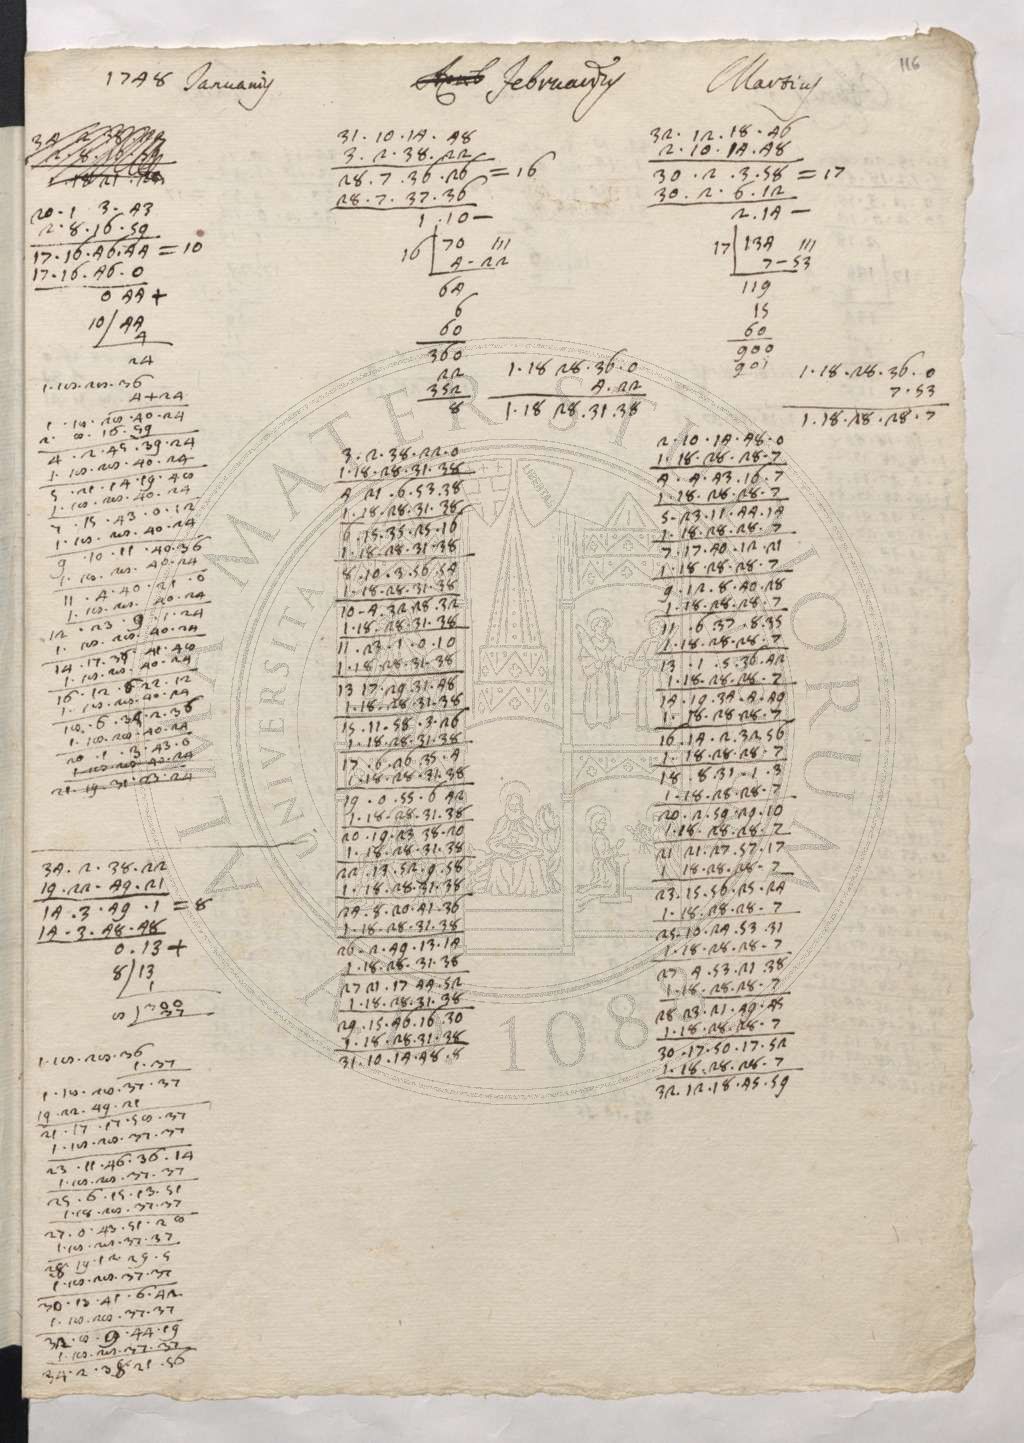 116
1748 Januarius
20.1 3.43
2.8.16.59
17.16.46.44 = 10
17.16.46.0
0 44+
10/44
4
24
1.18.28.36
4+24
1.18.28.40.24
2.8.16.59
4.2.45.39.24
1.18.28.40.24
5.21.14.19.48
1.18.28.40.24
7.15.43.0.12
1.18.28.40.24
9.10.11.40.36
1.18.28.40.24
11.4.40.21.0
1.18.28.40.24
12.23.9.1.24
1.18.28.40.24
14.17.37.41.48
1.18.28.40.24
16.12.6.22.12
1.18.28.40.24
18.6.35.2.36
1.18.28.40.24
20.1.3.43.0
1.18.28.40.24
21.19.31.23.24
34.2.38.22
19.22.49.21
14.3.49.1 = 8
14.3.48.48
0.13+
8/13
1
8/300
37
1.18.28.36
1.37
1.18.28.37.37
19.22.49.21
21.17.17.58.37
1.18.28.37.37
23.11.46.36.14
1.18.28.37.37
25.6.15.13.51
1.18.28.37.37
27.0.43.51.28
1.18.28.37.37
28.19.12.29.5
1.18.28.37.37
30.13.41.6.42
1.18.28.37.37
32.8.9.44.19
1.18.28.37.37
34.2.38.21.56
Februarius
31.10.14.48
3.2.38.22
28.7.36.26 = 16
28.7.37.36
1.10—
16 70 III
4-22
64
6
60
360
22
352
8
1.18 28.36.0
4.22
1.18 28.31.38
3.2.38.22.0
1.18.28.31.38
4 21.6.53.38
1.18.28.31.38
6.15.35.25.16
1.18.28.31.38
8.10.3.56.54
1.18.28.31.38
10-4.32.28.32
1.18.28.31.38
11.23.1.0.10
1.18.28.31.38
13 17.29.31.48
1.18.28.31.38
15.11.58.3.26
1.18.28.31.38
17.6.26.35.4
1.18.28.31.38
19.0.55.6 42
1.18.28.31.38
20.19.23 38.20
1.18.28.31.38
22.13.52.9.58
1.18.28.31.38
24.8.20.41.36
1.18.28.31.38
26.2.49.13.14
1.18.28.31.38
27 21.17 44.52
1.18.28.31.38
29.15.46.16.30
1.18.28.31.38
31.10.14.48.8
Martius
32.12.18.46
2.10.14.48
30.2.3.58 = 17
30.2.6.12
2.14—
17 134 III
7-53
119
15
60
900
901
1.18.28.36.0
7.53
1.18.28.28.7
2.10.14.48.0
1.18.28.28.7
4.4.43.16.7
1.18.28.28.7
5.23.11.44.14
1.18.28.28.7
7.17.40.12.21
1.18.28.28.7
9.12.8.40.28
1.18.28.28.7
11.6.37.8.35
1.18.28.28.7
13.1.5.36.42
1.18.28.28.7
14.19.34.4.49
1.18.28.28.7
16.14.2.32.56
1.18.28.28.7
18.8.31.1.3
1.18.28.28.7
20.2.59.29.10
1.18.28.28.7
21 21.27.57.17
1 18.28.28.7
23.15.56.25.24
1.18.28.28.7
25.10.24.53.31
1.18.28.28.7
27 4.53.21.38
1.18.28.28.7
28 23.21.49.45
1.18.28.28.7
30.17.50.17.52
1.18.28.28.7
32.12.18.45.59
ALMA MATER STUDIORUM
UNIVERSITA
108